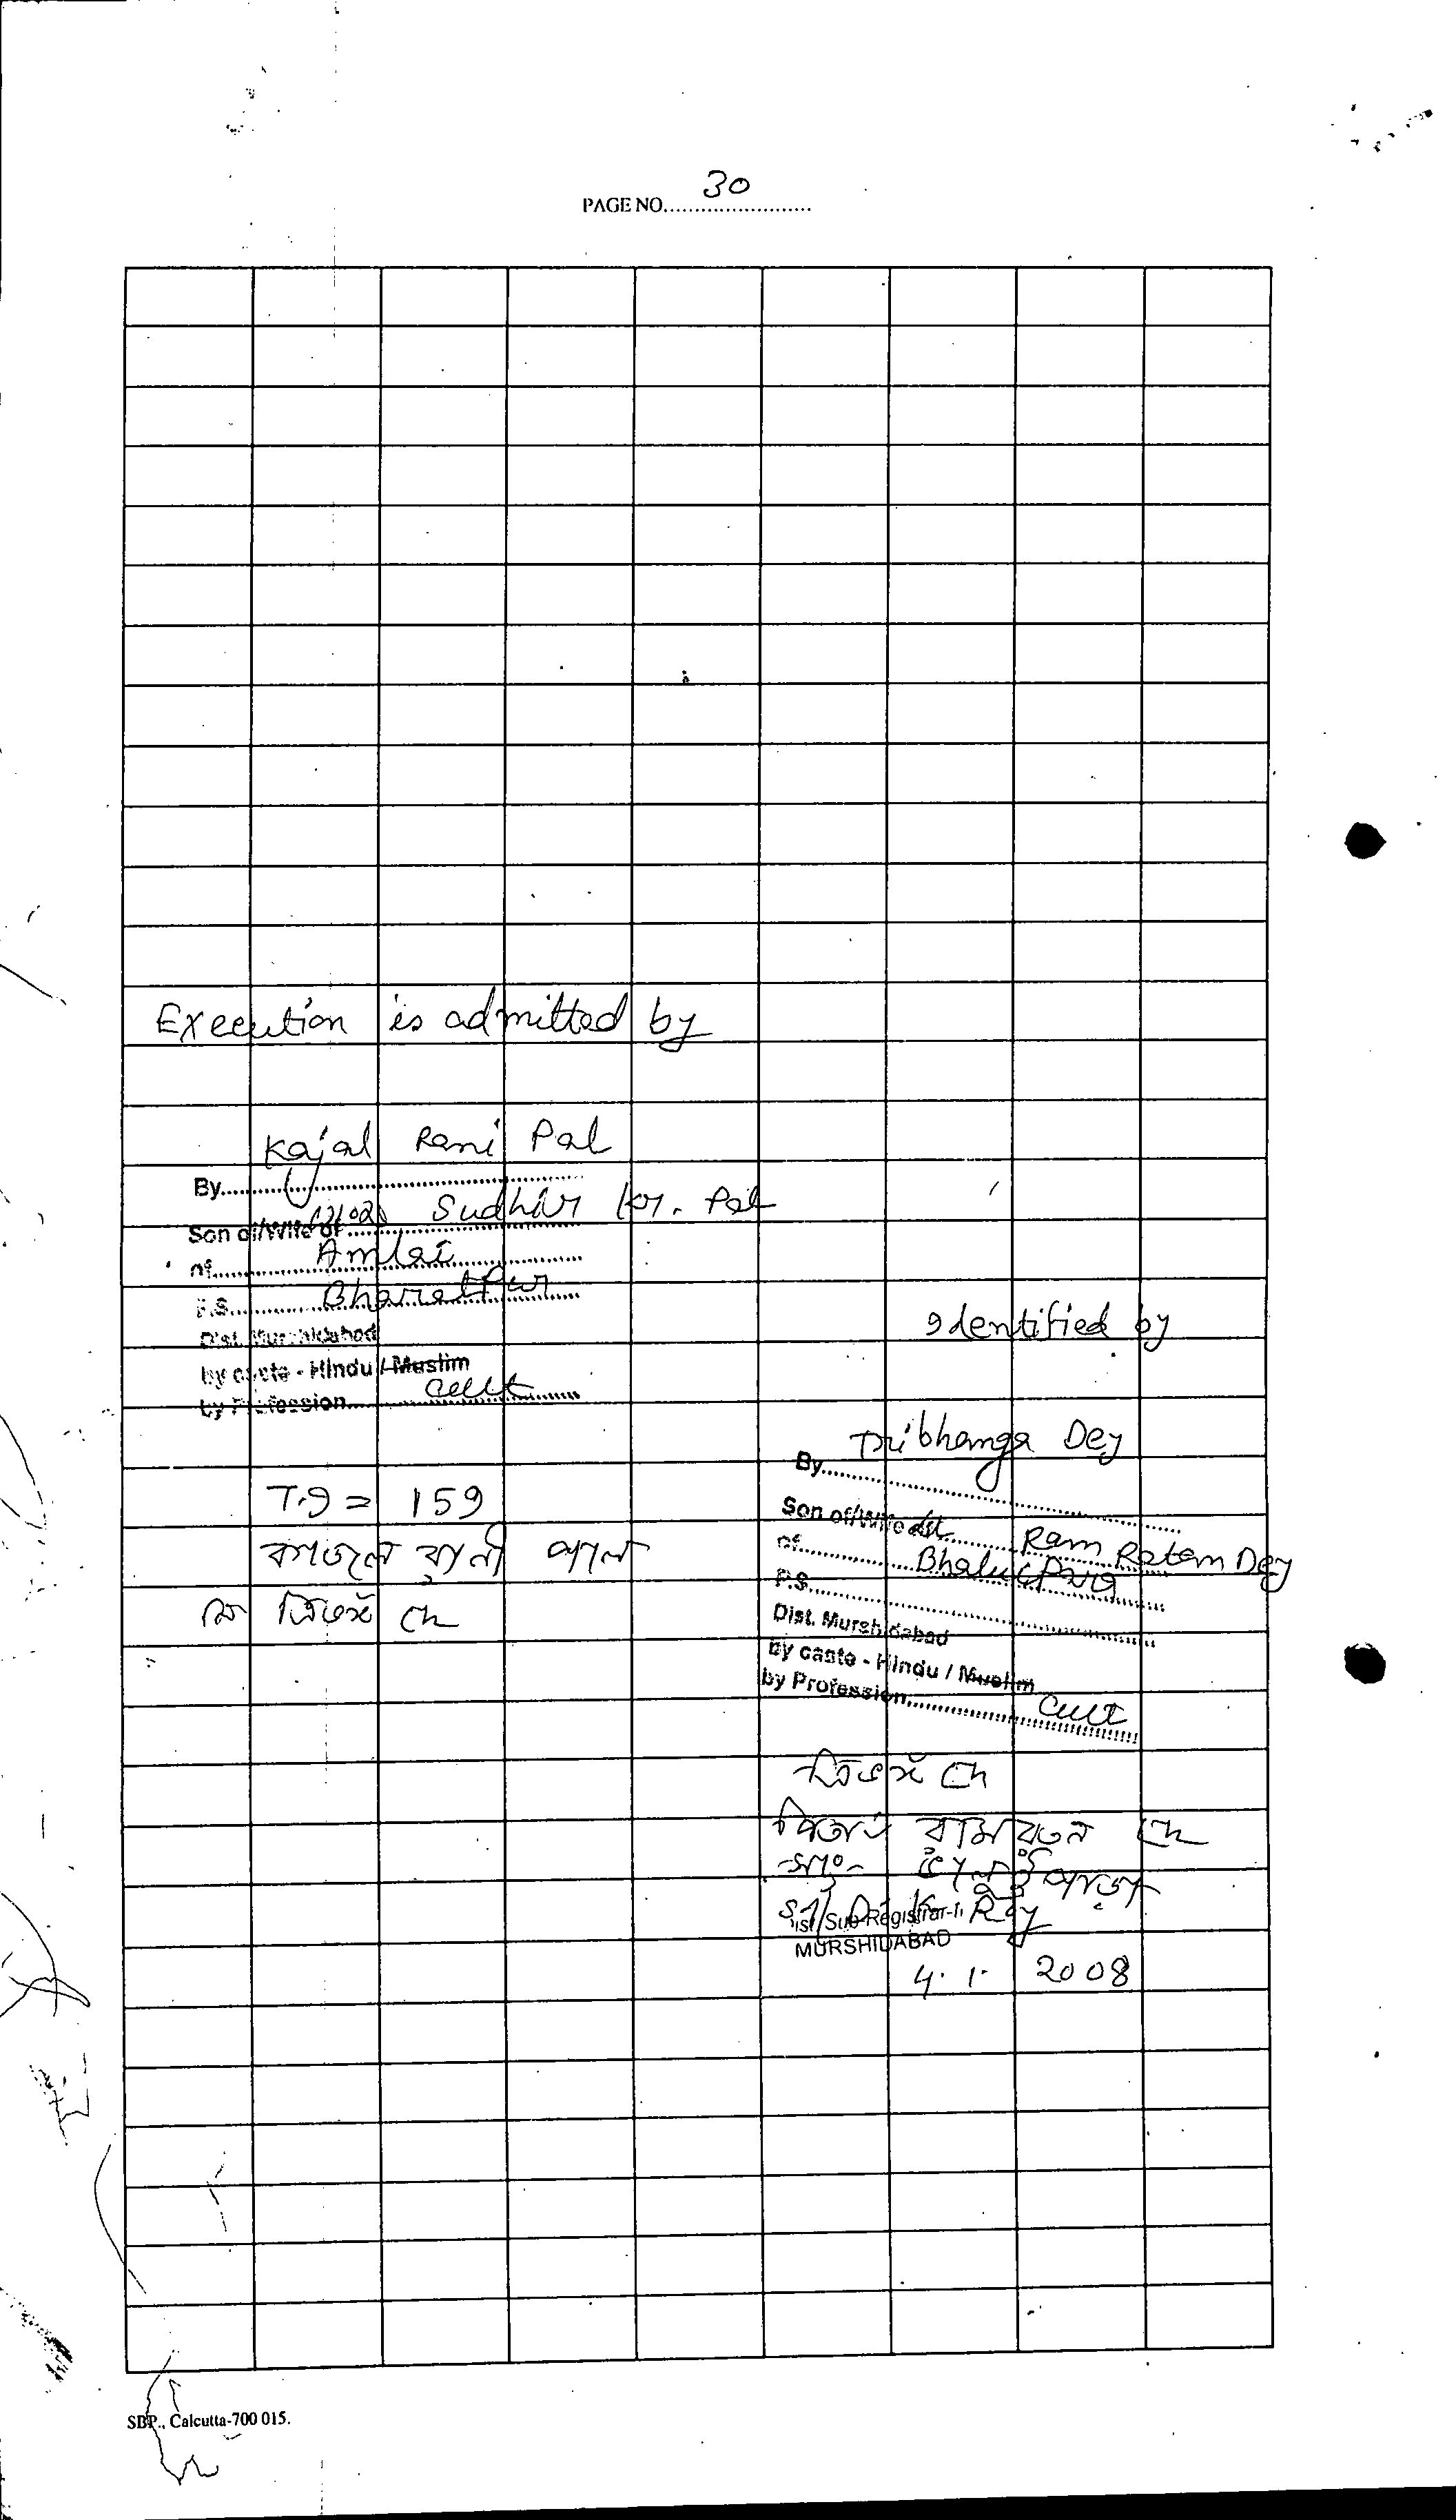 PAGE NO. 30
Execution is admitted by
Kajal Rani Pal
By
Son of/Wife of Sudhir Kr. Pal
of Amlai
P.S. Bharatpur
Dist. Murshidabad
by caste - Hindu / Muslim
by Profession Cult
T.I = 159
কাজল রানী পাল
ত্রিভঙ্গ দে
Identified by
Tribhanga Dey
By
Son of/Wife of Ram Ratan Dey
of Bhaluipara
P.S.
Dist. Murshidabad
by caste - Hindu / Muslim
by Profession Cult
ত্রিভঙ্গ দে
পিতা রামরতন দে
সাং- ভালুইপাড়া
Sd/ D. K. Roy
Dist Sub-Registrar-I,
MURSHIDABAD
4. 1. 2008
SBP., Calcutta-700 015.